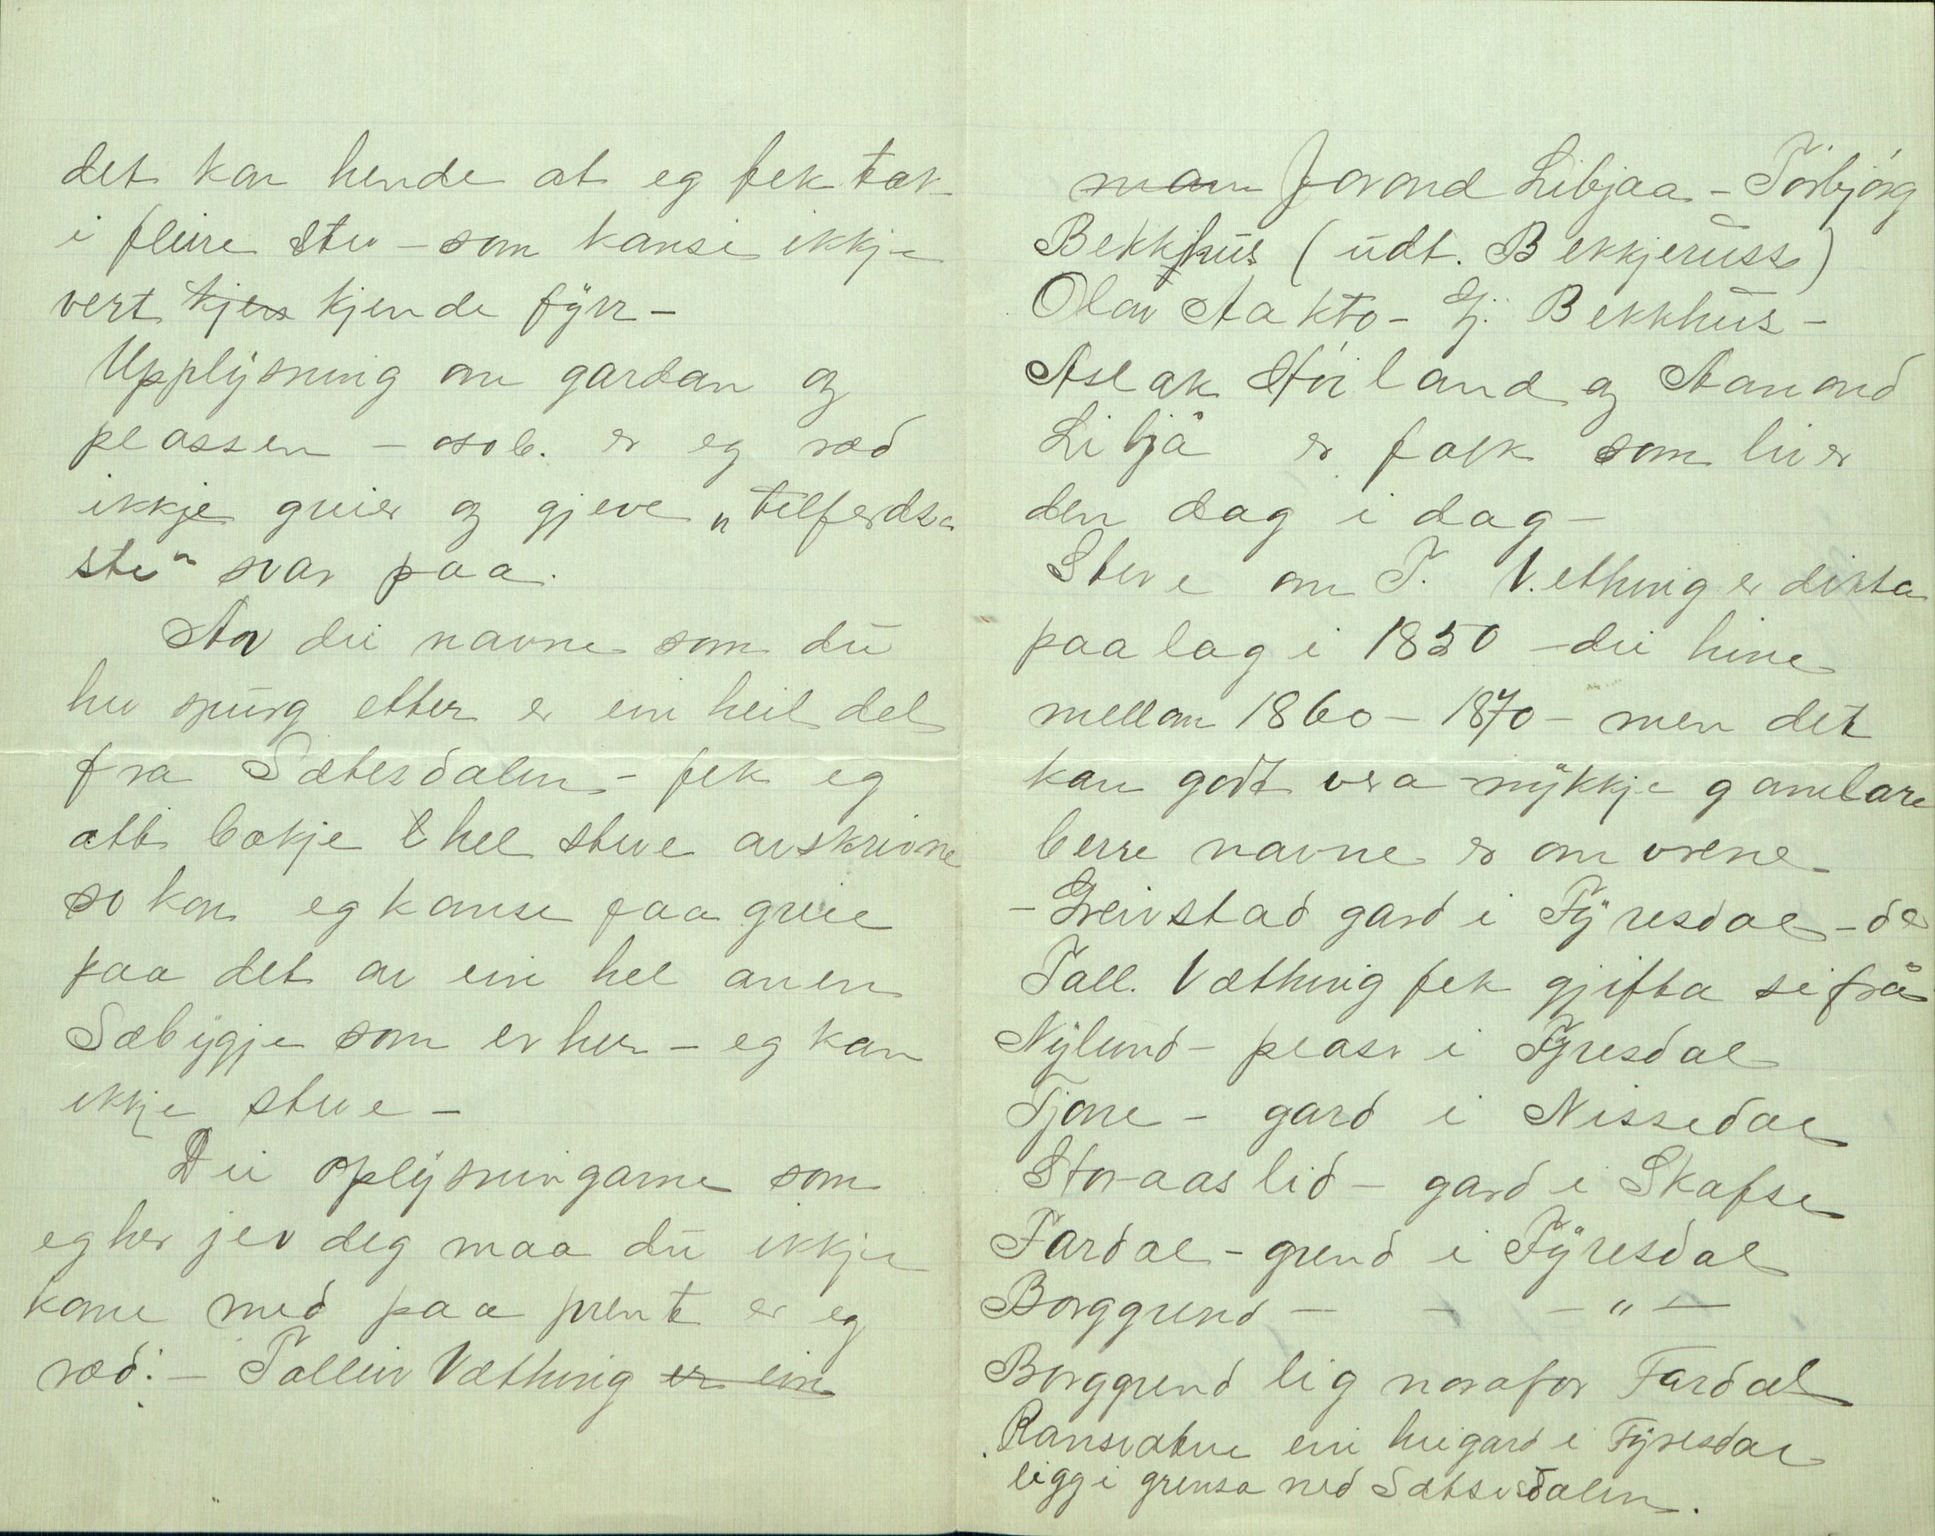 det kan hende at eg fek tak
i fleire stev – som kansi ikkje
vert kjen kjende fyrr –
Upplysning om gardan og
plassen – osb. er eg ræd
ikkje greier og gjeve „tilferdsa
ste" svar paa.
Av dei navne som du
hev spurg etter er ein heil del
fra Sætesdalen – fek eg
att bokje hel steve avskrivne
so kan eg kansi faa greie
paa det av ein hel anen
Sæbyggje som er her – eg kan
ikkje steve –
Dei oplysningarne som
eg her jev deg maa du ikkje
kome med paa prent er eg
ræd: – Talleiv Væthing er ein
man Jorond Libjaa – Torbjörg
Bekkhus (udt. Bekkjeruss)
Olav Aakto – Gj. Bekkhus –
Aslak Höiland og Aanond
Libjå er folk som liver
den dag i dag –
Steve om T. Vething er dikta
paa lag i 1850 – dei hine
mellom 1860 – 1870 – men det
kan godt vera mykkje gamlare
berre navne er om vrene –
– Greivstad gard i Fyresdal – da
Tall. Væthing fek gjifta si frå
Nylund – plass i Fyresdal
Tjone – gard i Nissedal
Stor-aaslid – gard i Skafse
Fardal – grend i Fyresdal
Borggrend – – – „ –
Borggrend lig norafor Fardal
Ransvatne ein heigard i Fyresdal
ligg i grensa med Sætesdalen.